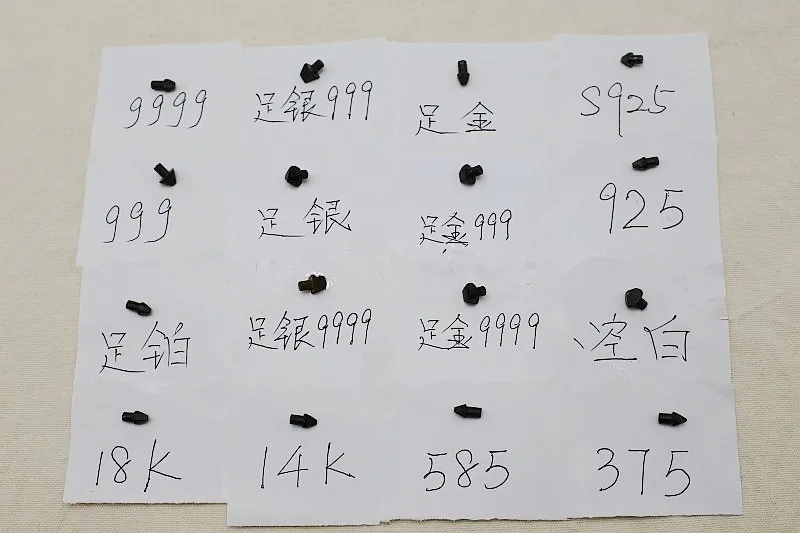 9999
足银999
足金
S925
999
足银
足金999
925
足铂
足银9999
足金9999
空白
18K
14K
585
375